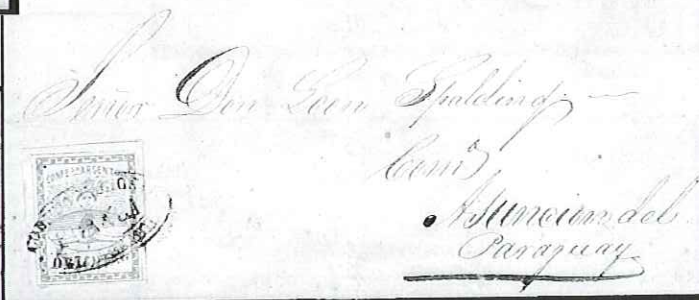 Señor Don Leon Spalding
Asuncion del
Paraguay
CONFON ARGENTINA